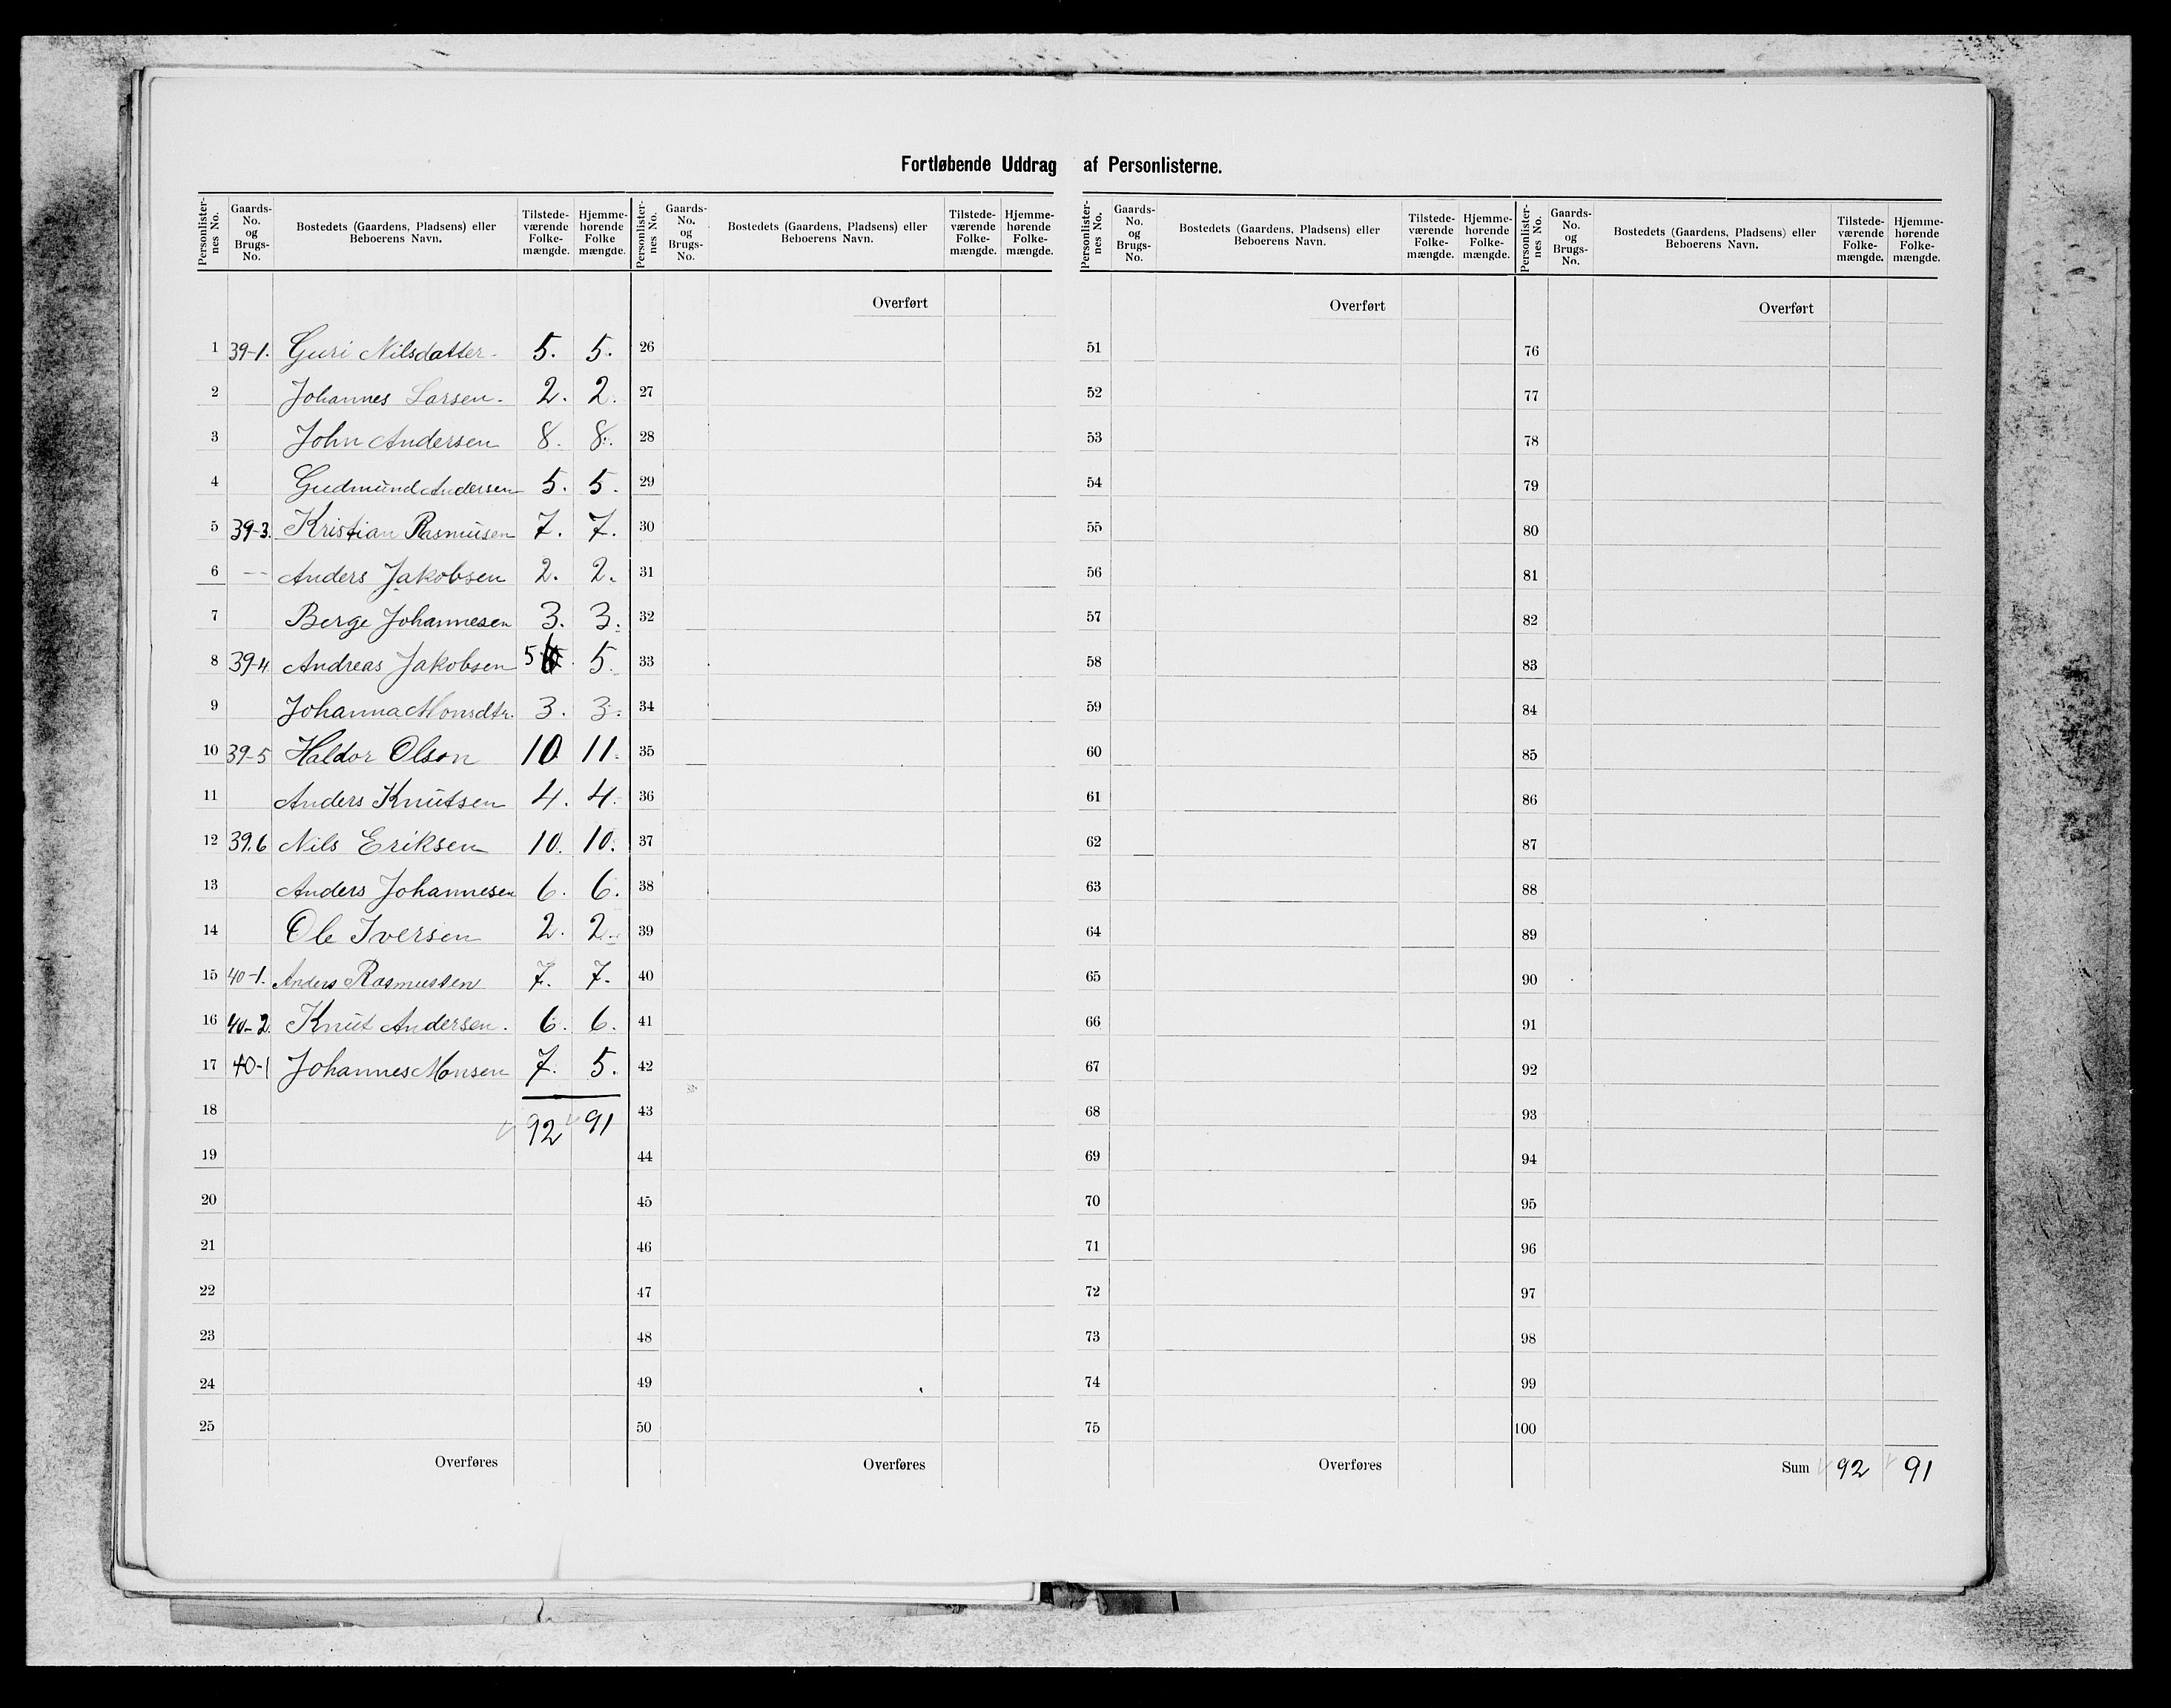 Fortløbende Uddrag af Personlisterne.
Personlister-nes No. Gaards-No. og Brugs-No. Bostedets (Gaardens, Pladsens) eller Beboerens Navn. Tilstede-værende Folke-mængde. Hjemme-hørende Folke mængde.
Personlister-nes No. Gaards-No. og Brugs-No. Bostedets (Gaardens, Pladsens) eller Beboerens Navn. Tilstede-værende Folke-mængde. Hjemme-hørende Folke-mængde.
Personlister-nes No. Gaards-No. og Brugs-No. Bostedets (Gaardens, Pladsens) eller Beboerens Navn. Tilstede-værende Folke-mængde. Hjemme-hørende Folke-mængde.
Personlister-nes No. Gaards-No. og Brugs-No. Bostedets (Gaardens, Pladsens) eller Beboerens Navn. Tilstede-værende Folke-mængde. Hjemme-hørende Folke-mængde.
Overført Overført Overført
1 39-1. Guri Nilsdatter. 5. 5. 26 51 76
2 Johannes Larsen. 2. 2. 27 52 77
3 John Andersen 8. 8. 28 53 78
4 Gudmund Andersen 5. 5. 29 54 79
5 39-3. Kristian Rasmusen 7. 7. 30 55 80
6 -- Anders Jakobsen 2. 2. 31 56 81
7 Berge Johannesen 3. 3. 32 57 82
8 39-4. Andreas Jakobsen 5 5. 33 58 83
9 Johanna Monsdtr. 3. 3. 34 59 84
10 39-5 Haldor Olson 10 11. 35 60 85
11 Anders Knutsen 4. 4. 36 61 86
12 39.6 Nils Eriksen 10. 10. 37 62 87
13 Anders Johannesen 6. 6. 38 63 88
14 Ole Iversen 2. 2. 39 64 89
15 40-1. Anders Rasmussen 7. 7. 40 65 90
16 40-2. Knut Andersen. 6. 6. 41 66 91
17 40-1 Johannes Monsen 7. 5. 42 67 92
18 92 91 43 68 93
19 44 69 94
20 45 70 95
21 46 71 96
22 47 72 97
23 48 73 98
24 49 74 99
25 50 75 100
Overføres Overføres Overføres Sum 92 91